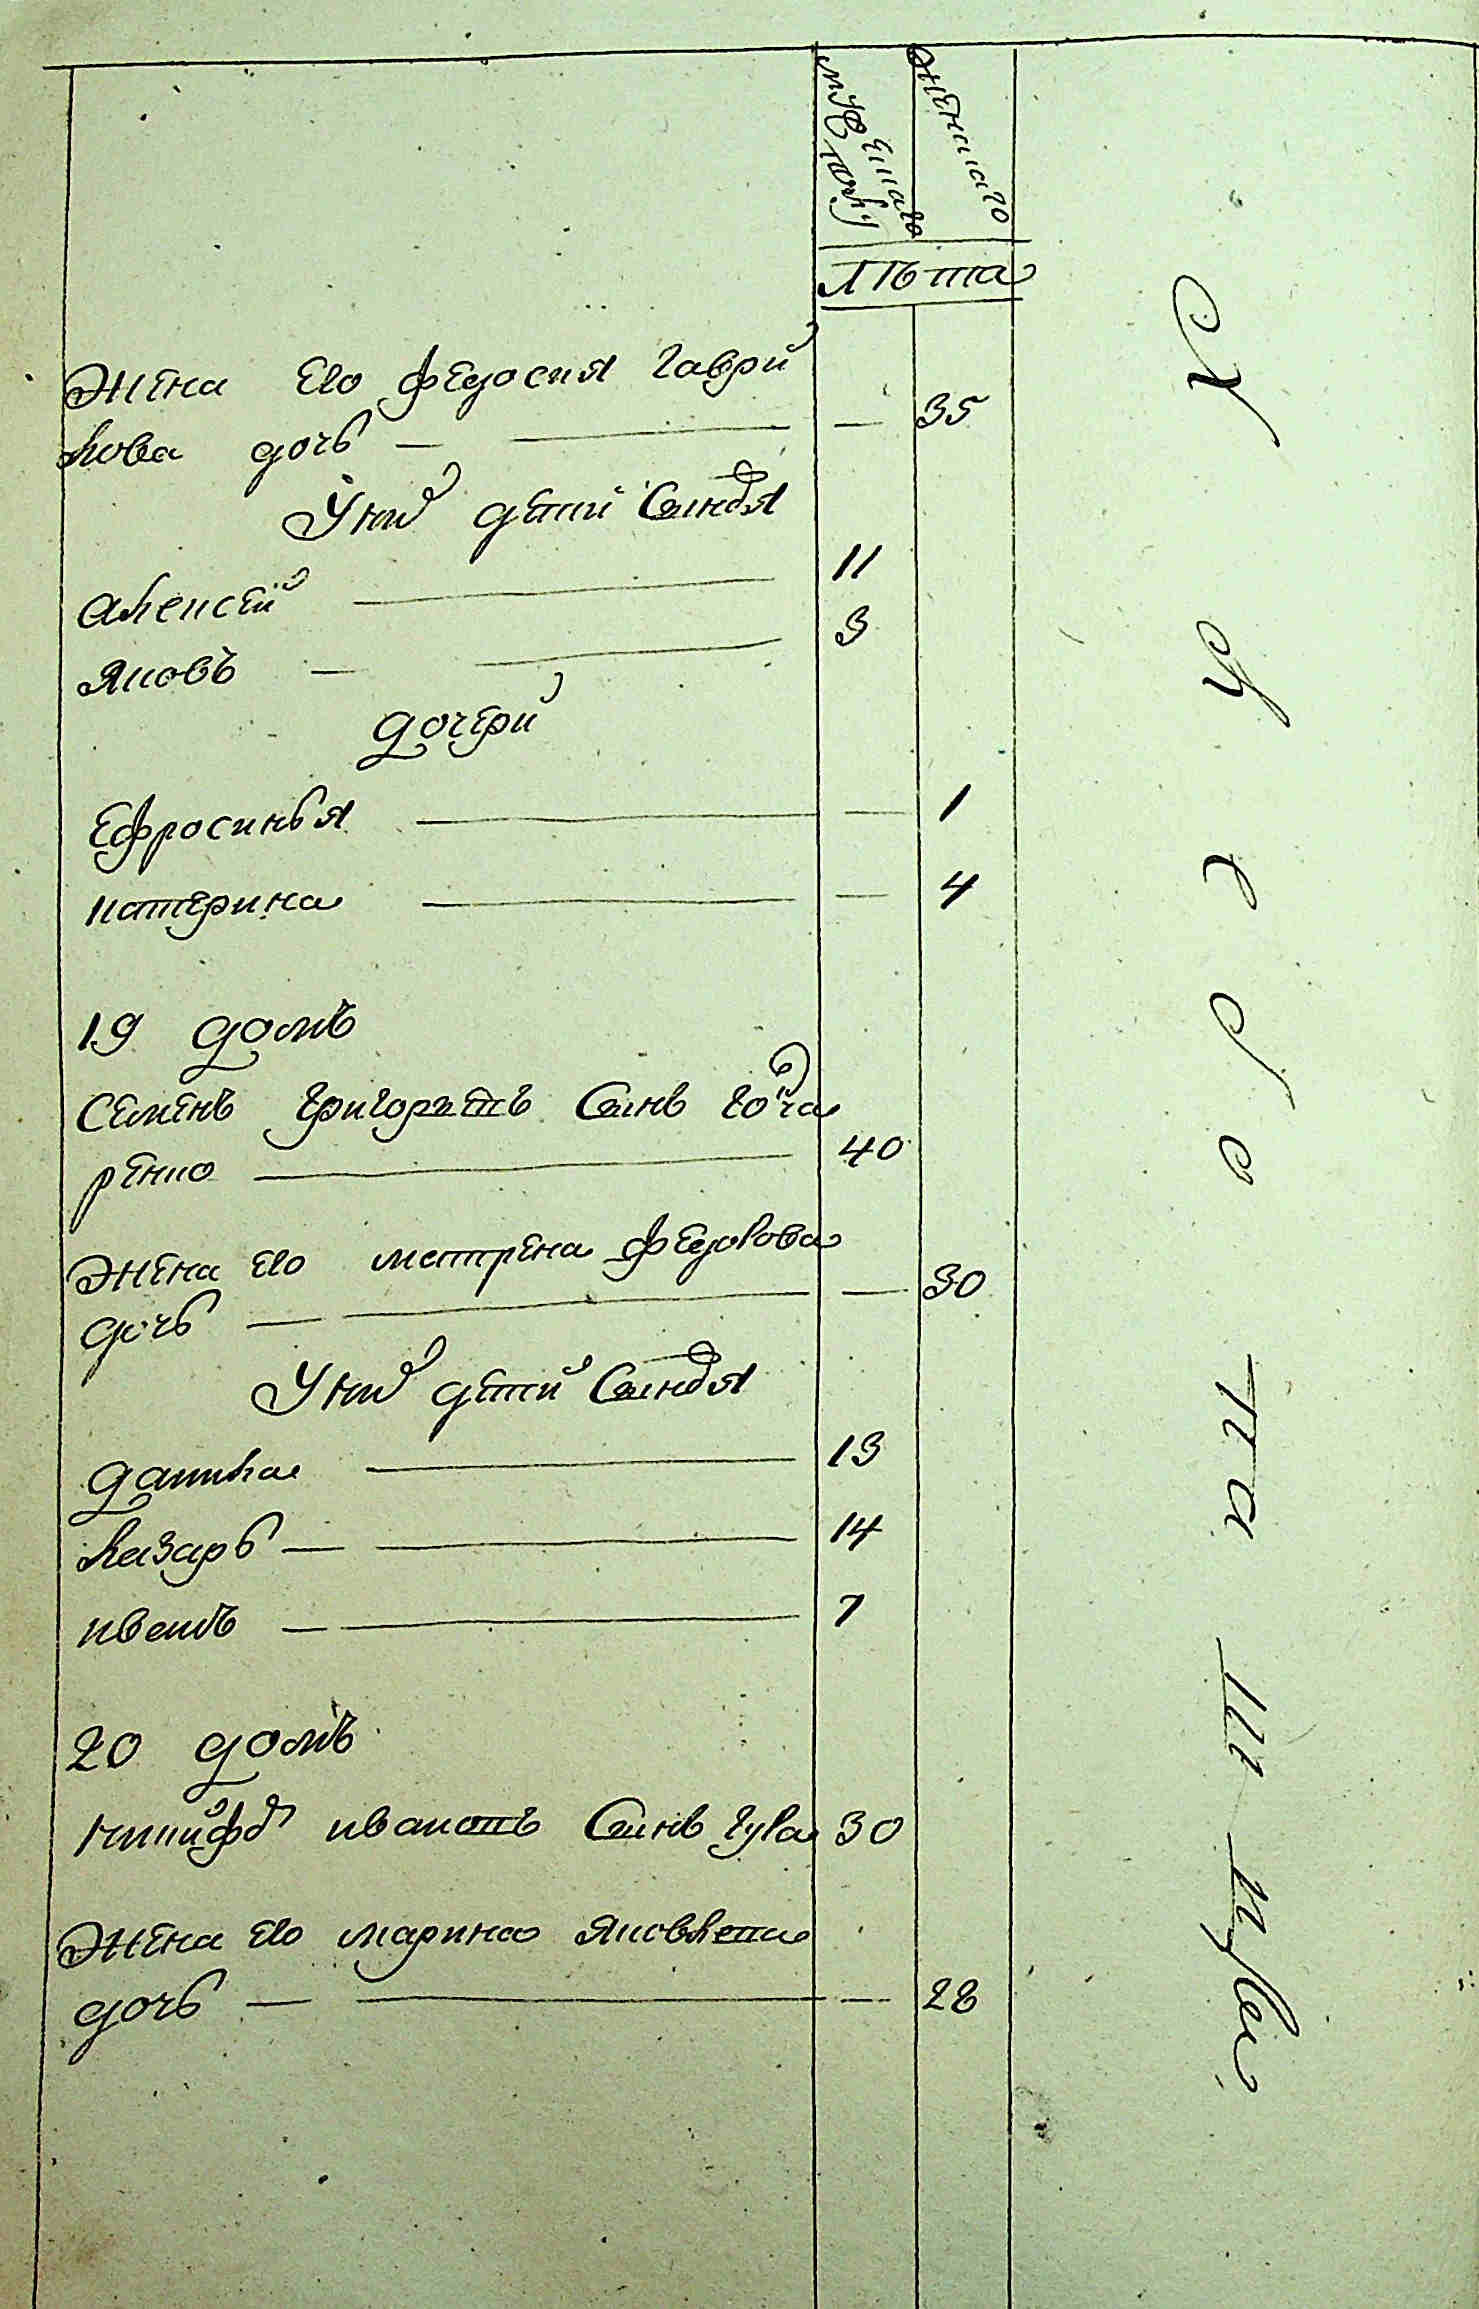 мужеска
женскаго
лѣта
жена его федосия гаври
лова дочь 35
У них дѣтей Синовя
алексей 11
яковъ 3
дочери
Ефросинья 1
катерина 4
19 домъ
Семенъ григорьевъ Синъ гонча
ренко 40
жена его матрена федорова
дочь 30
У них дѣтей Синовя
данила 13
лазарь 14
иванъ 7
20 домъ
никифор ивановъ Синъ гула 30
жена его марина яковлева
дочь 28